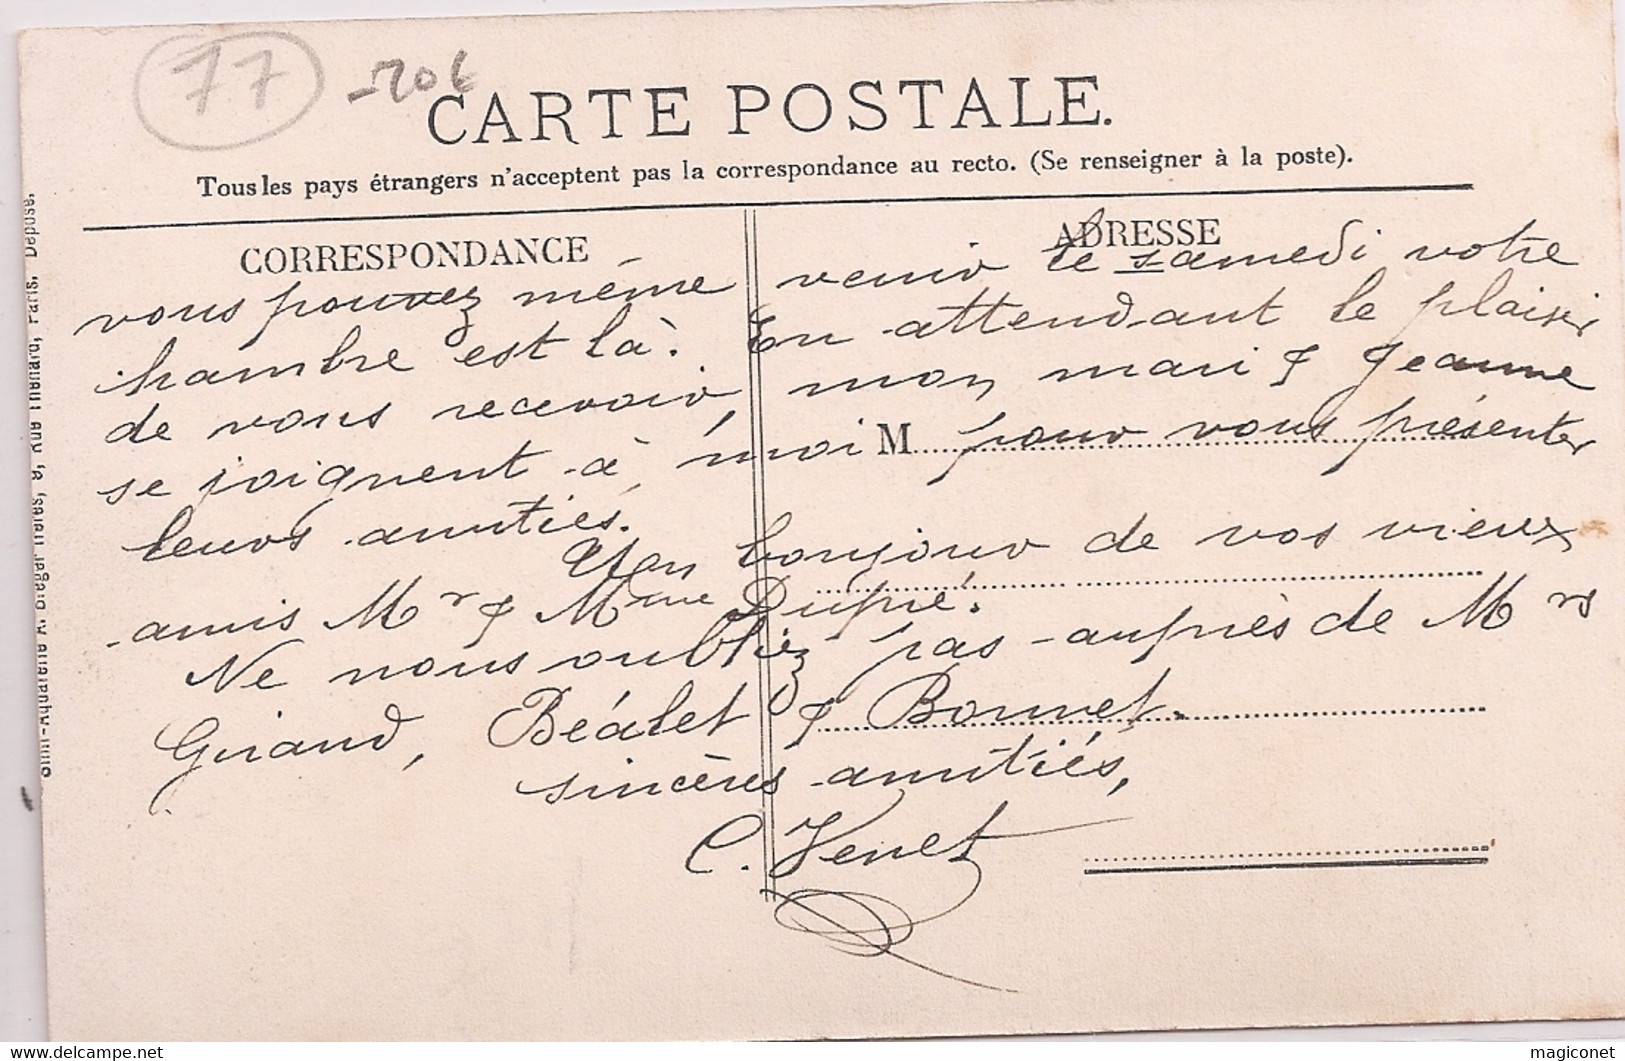 77
CARTE POSTALE.
Tous les pays étrangers n'acceptent pas la correspondance au recto. (Se renseigner à la poste).
CORRESPONDANCE
ADRESSE
vous pouvez même venir le samedi votre
chambre est là. En attendant le plaisir
de vous recevoir, mon mari & Jeanne
se joignent à moi M pour vous présenter
leurs amitiés.
Un bonjour de vos vieux
amis Mr & Mme Dupré.
Ne nous oubliez pas auprès de Mrs
Giraud, Béalet & Bonnet.
sincères amitiés,
C. Venet
Simi-Aquarelle A. Breger frères, 9, Rue Thénard, Paris. Déposé.
delcampe.net
magiconet